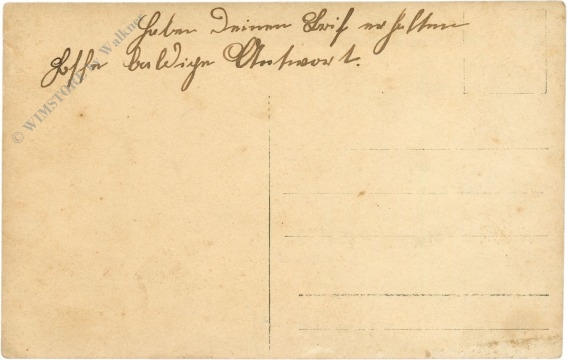 Haben Deinen Brif erhalten
Hoffe baldige Antwort.
© WIMSTORE W Walkner